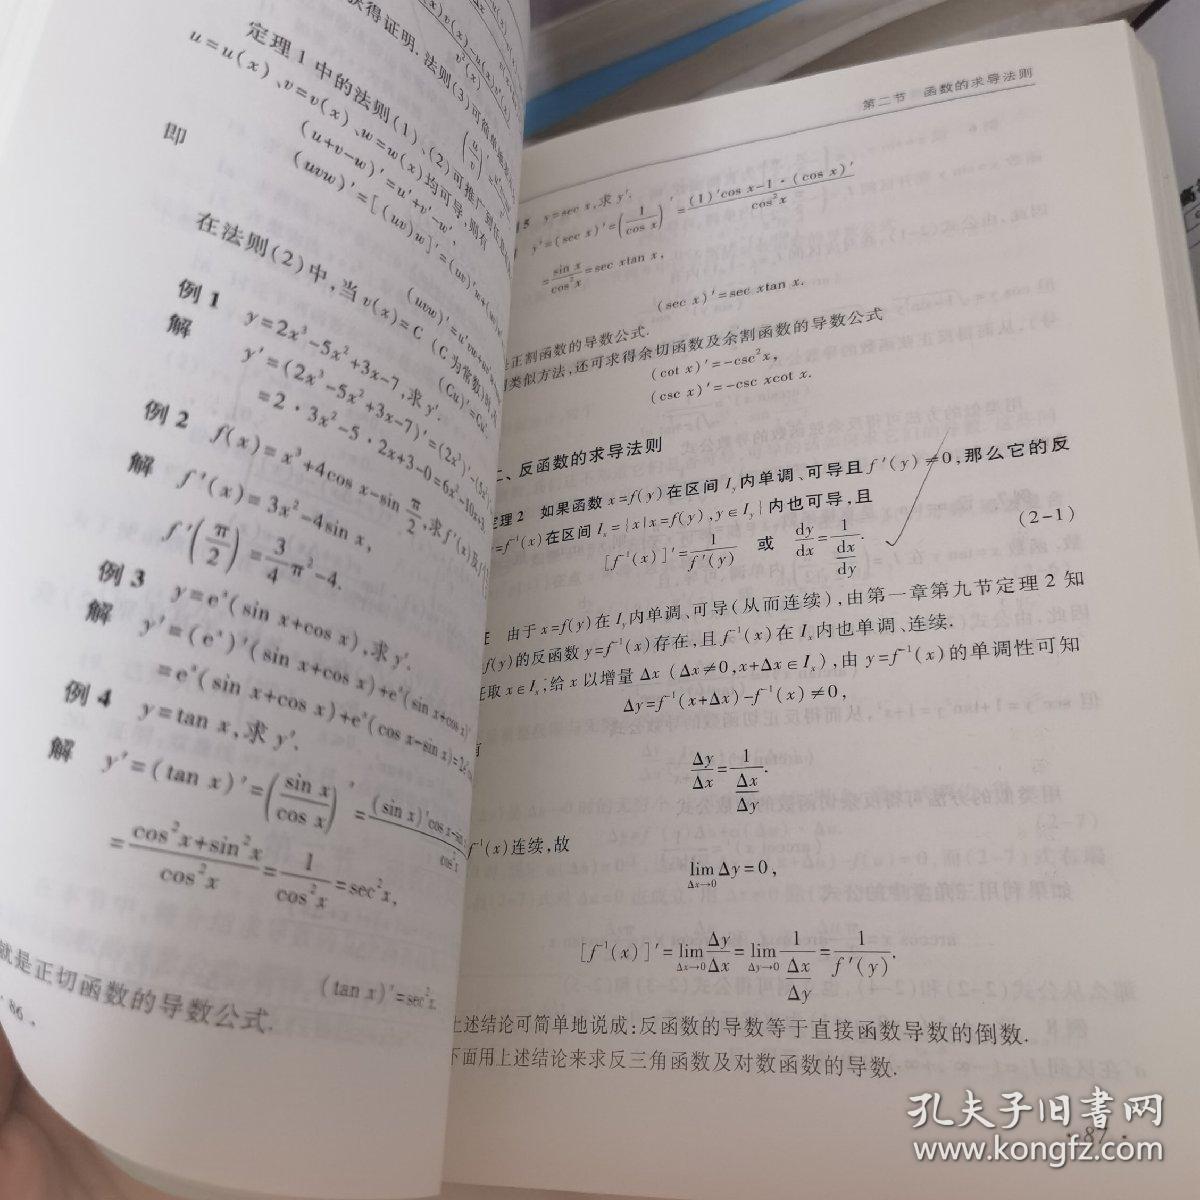 获得证明.法则(3)可简单地表
定理1中的法则(1)、(2)可推广到任意
u=u(x)、v=v(x)、w=w(x)均可导,则有
(u+v-w)'=u'+v'-w',
即
(uvw)'=[(uv)w]'=(uv)'w+(uv)
(uvw)'=u'vw+uv'
在法则(2)中,当v(x)=C (C为常数)时,
(Cu)'=Cu'.
例1 y=2x³-5x²+3x-7,求y'.
解 y'=(2x³-5x²+3x-7)'=(2x³)'-(5x²
=2·3x²-5·2x+3-0=6x²-10x+3.
例2 f(x)=x³+4cos x-sin π/2,求f'(x)及
解 f'(x)=3x²-4sin x,
f'(π/2)=3/4π²-4.
例3 y=eˣ(sin x+cos x),求y'.
解 y'=(eˣ)'(sin x+cos x)+eˣ(sin x+cos x)'
=eˣ(sin x+cos x)+eˣ(cos x-sin x)=
例4 y=tan x,求y'.
解 y'=(tan x)'=(sin x/cos x)'=(sin x)'cos x
=(cos²x+sin²x)/cos²x=1/cos²x=sec²x,
(tan x)'=sec²x.
就是正切函数的导数公式.
·86·
第二节 函数的求导法则
5 y=sec x,求y'.
y'=(sec x)'=(1/cos x)'=((1)'cos x-1·(cos x)')/cos²x
=sin x/cos²x=sec xtan x,
(sec x)'=sec xtan x.
正割函数的导数公式.
类似方法,还可求得余切函数及余割函数的导数公式
(cot x)'=-csc²x,
(csc x)'=-csc xcot x.
二、反函数的求导法则
定理2 如果函数x=f(y)在区间I_y内单调、可导且f'(y)≠0,那么它的反
=f⁻¹(x)在区间I_x={x|x=f(y),y∈I_y}内也可导,且
[f⁻¹(x)]'=1/f'(y) 或 dy/dx=1/(dx/dy). (2-1)
证 由于x=f(y)在I_y内单调、可导(从而连续),由第一章第九节定理2知
f(y)的反函数y=f⁻¹(x)存在,且f⁻¹(x)在I_x内也单调、连续.
任取x∈I_x,给x以增量Δx (Δx≠0,x+Δx∈I_x),由y=f⁻¹(x)的单调性可知
Δy=f⁻¹(x+Δx)-f⁻¹(x)≠0,
有
Δy/Δx=1/(Δx/Δy).
f⁻¹(x)连续,故
lim_{Δx→0}Δy=0,
[f⁻¹(x)]'=lim_{Δx→0}Δy/Δx=lim_{Δy→0}1/(Δx/Δy)=1/f'(y).
上述结论可简单地说成:反函数的导数等于直接函数导数的倒数.
下面用上述结论来求反三角函数及对数函数的导数.
·87·
孔夫子旧书网
www.kongfz.com